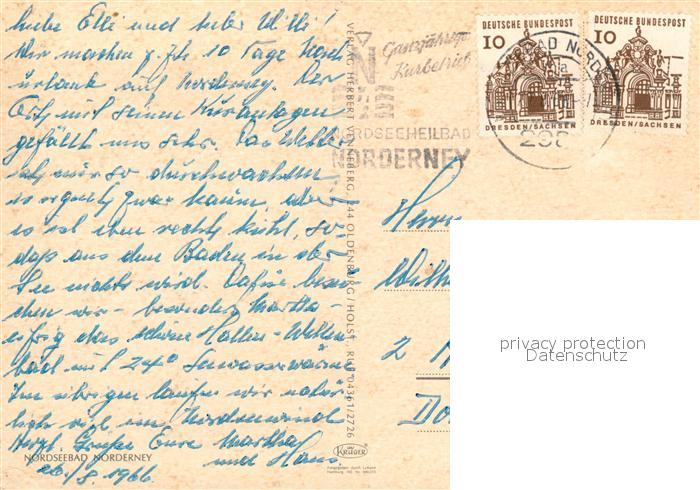 Liebe Elli und lieber Willi!
Wir machen z. Zt. 10 Tage Nach
urlaub auf Norderney. Der
Ort mit seinen Kuranlagen
gefällt uns sehr. Das Wetter
ist nur so durchwachsen
es regnet zwar kaum, aber
es ist eben recht kühl, so-
daß aus dem Baden in der
See nichts wird. Dafür besu-
chen wir – besonders Martha –
eifrig das schöne Hallen-Wellen-
bad mit 24° Seewasserwärme
Im übrigen laufen wir natür-
lich viel im Nordseewind
Herzl. Grüße Eure Martha
und Hans
26./8. 1966
NORDSEEBAD NORDERNEY
VERLAG HERBERT 244 OLDENBURG/HOLST. RUF 04361/2726
KRÜGER
Ganzjähriger
Kurbetrieb
NORDSEEHEILBAD
NORDERNEY
DEUTSCHE BUNDESPOST
10
DRESDEN/SACHSEN
DEUTSCHE BUNDESPOST
10
DRESDEN/SACHSEN
Herrn
Wilh
2
privacy protection
Datenschutz